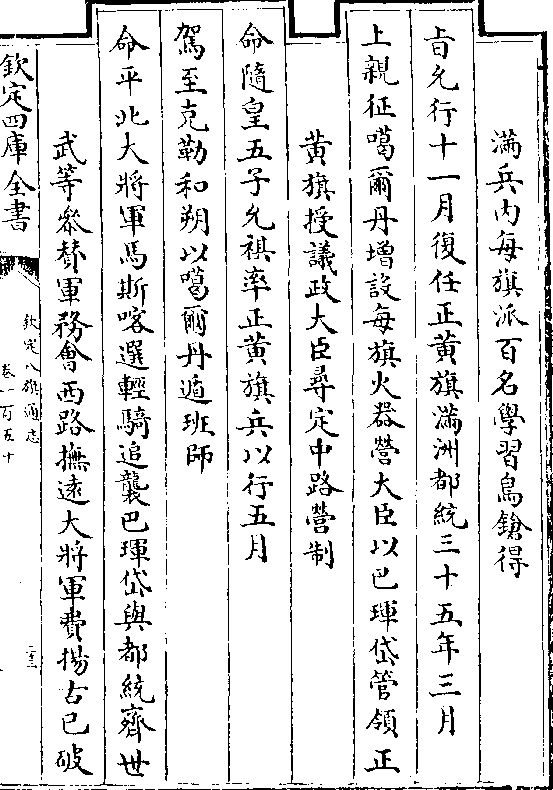 滿兵内每旗派百名學習鳥鎗得
㫖允行十一月復任正黃旗滿洲都統三十五年三月
上親征噶爾丹増設每旗火器營大臣以巴琿岱管領正
黃旗授議政大臣尋定中路營制
命隨皇五子允祺率正黃旗兵以行五月
駕至克勒和朔以噶爾丹遁班師
命平北大將軍馬斯喀選輕騎追襲巴琿岱與都統齊世
武等叅賛軍務會西路撫遠大將軍費揚古已破
欽定四庫全書
欽定八旗通志
卷一百五十
二十三